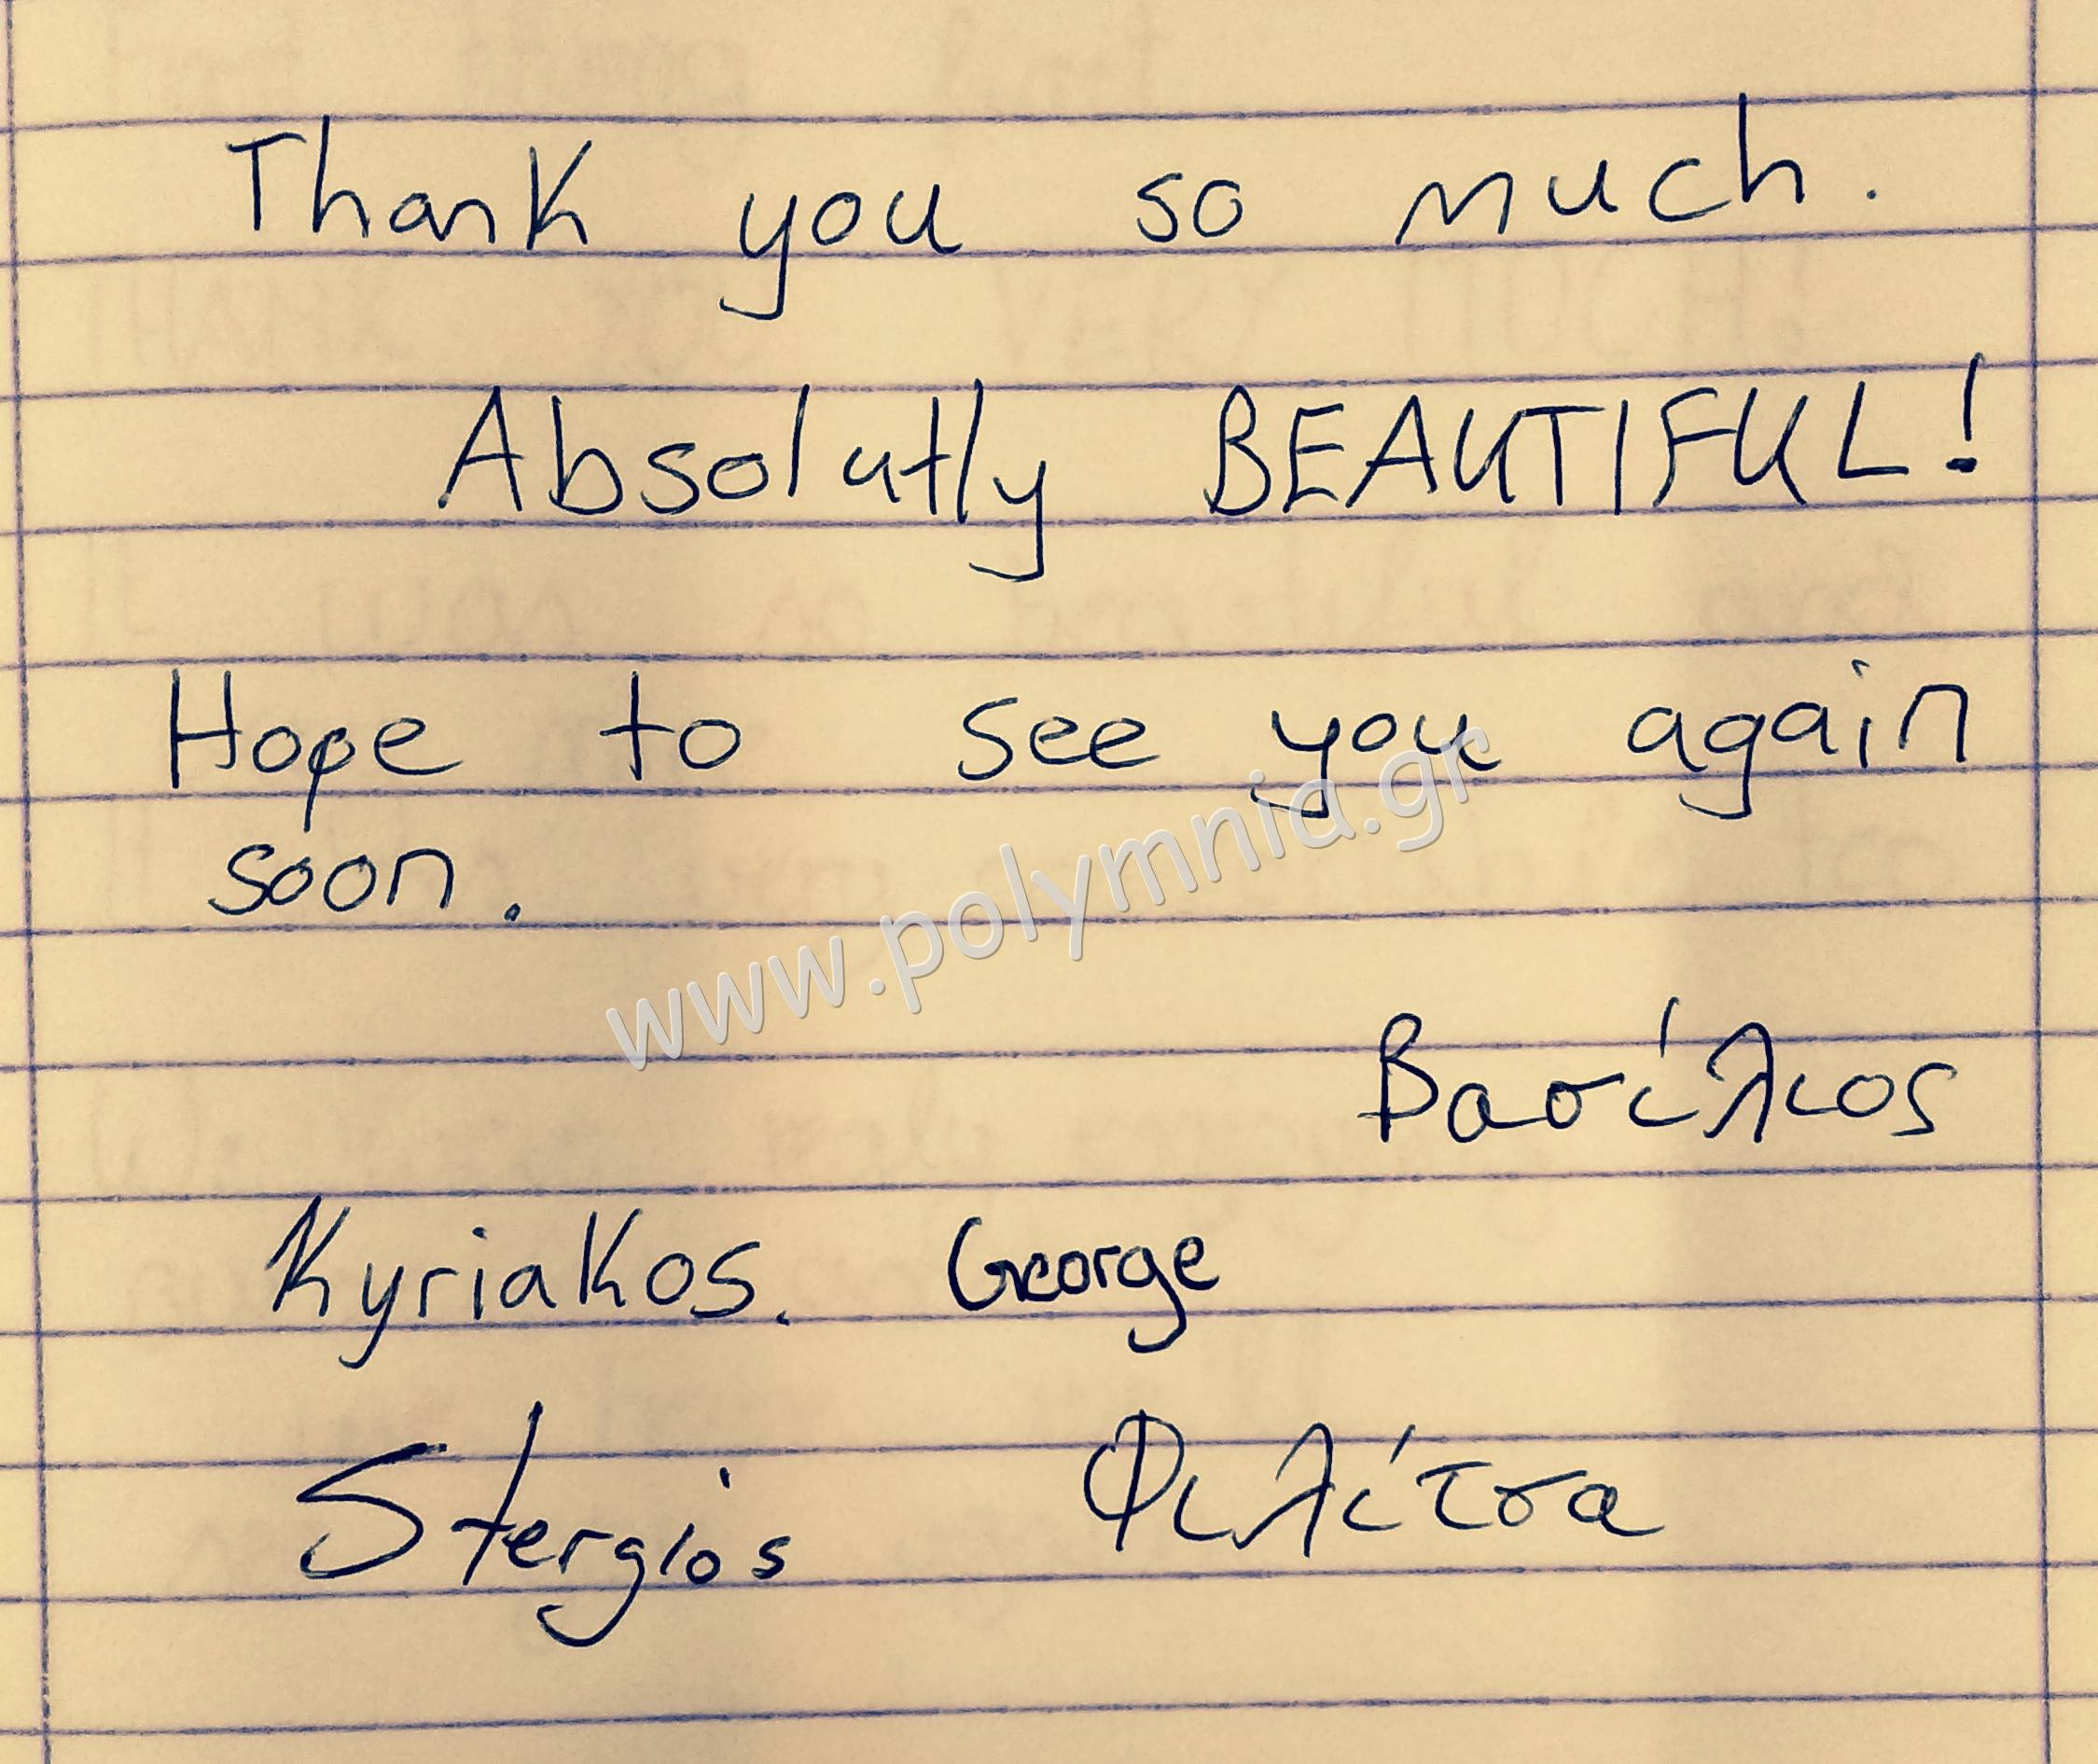 Thank you so much.
Absolutly BEAUTIFUL!
Hope to see you again
soon.
www.polymnia.gr
Βασίλιος
Kyriakos. George
Stergios Φιλίτσα